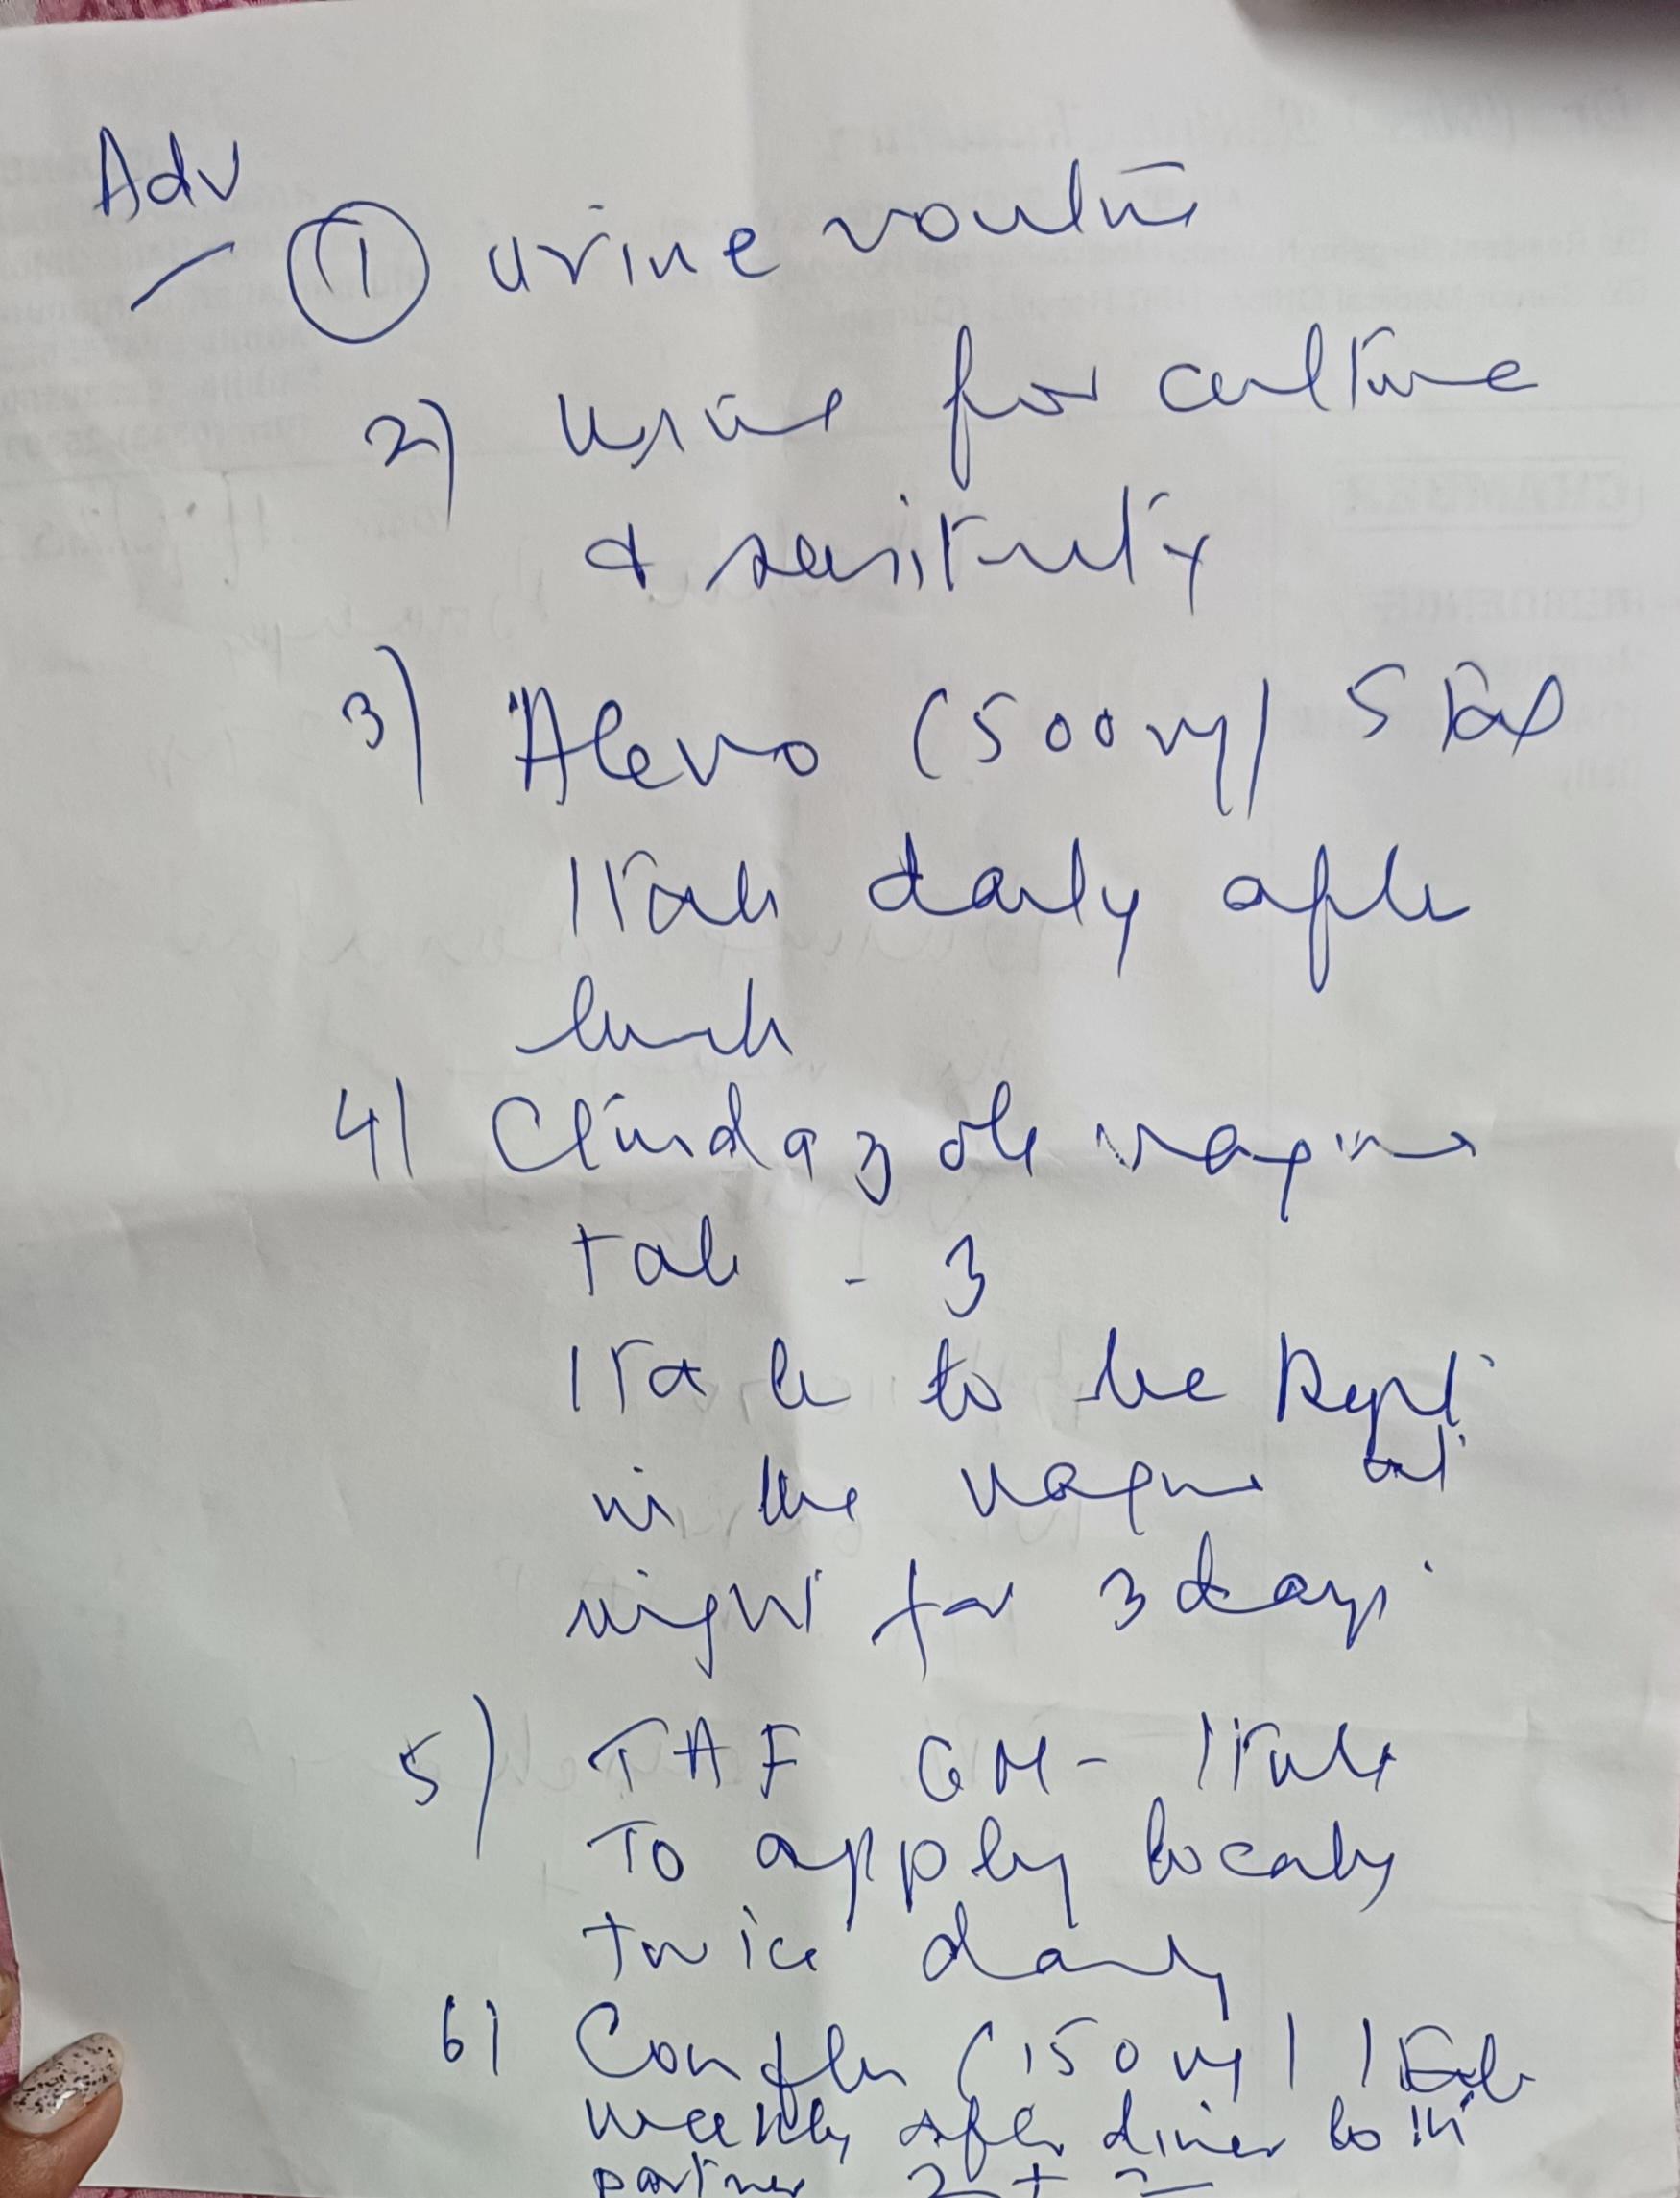 Adv
① urine routine
2) urine for culture
& sensitivity
3) Alevo (500mg) 5 tab
1 tab daily after
lunch
4) Clindazole vagina
tab - 3
1 tab to be kept
in the vagina at
night for 3 days
5) TAF GM - 1 tube
To apply locally
twice daily
6) Conflu (150mg) 1 tab
weekly after diner both
partner 2 + 2